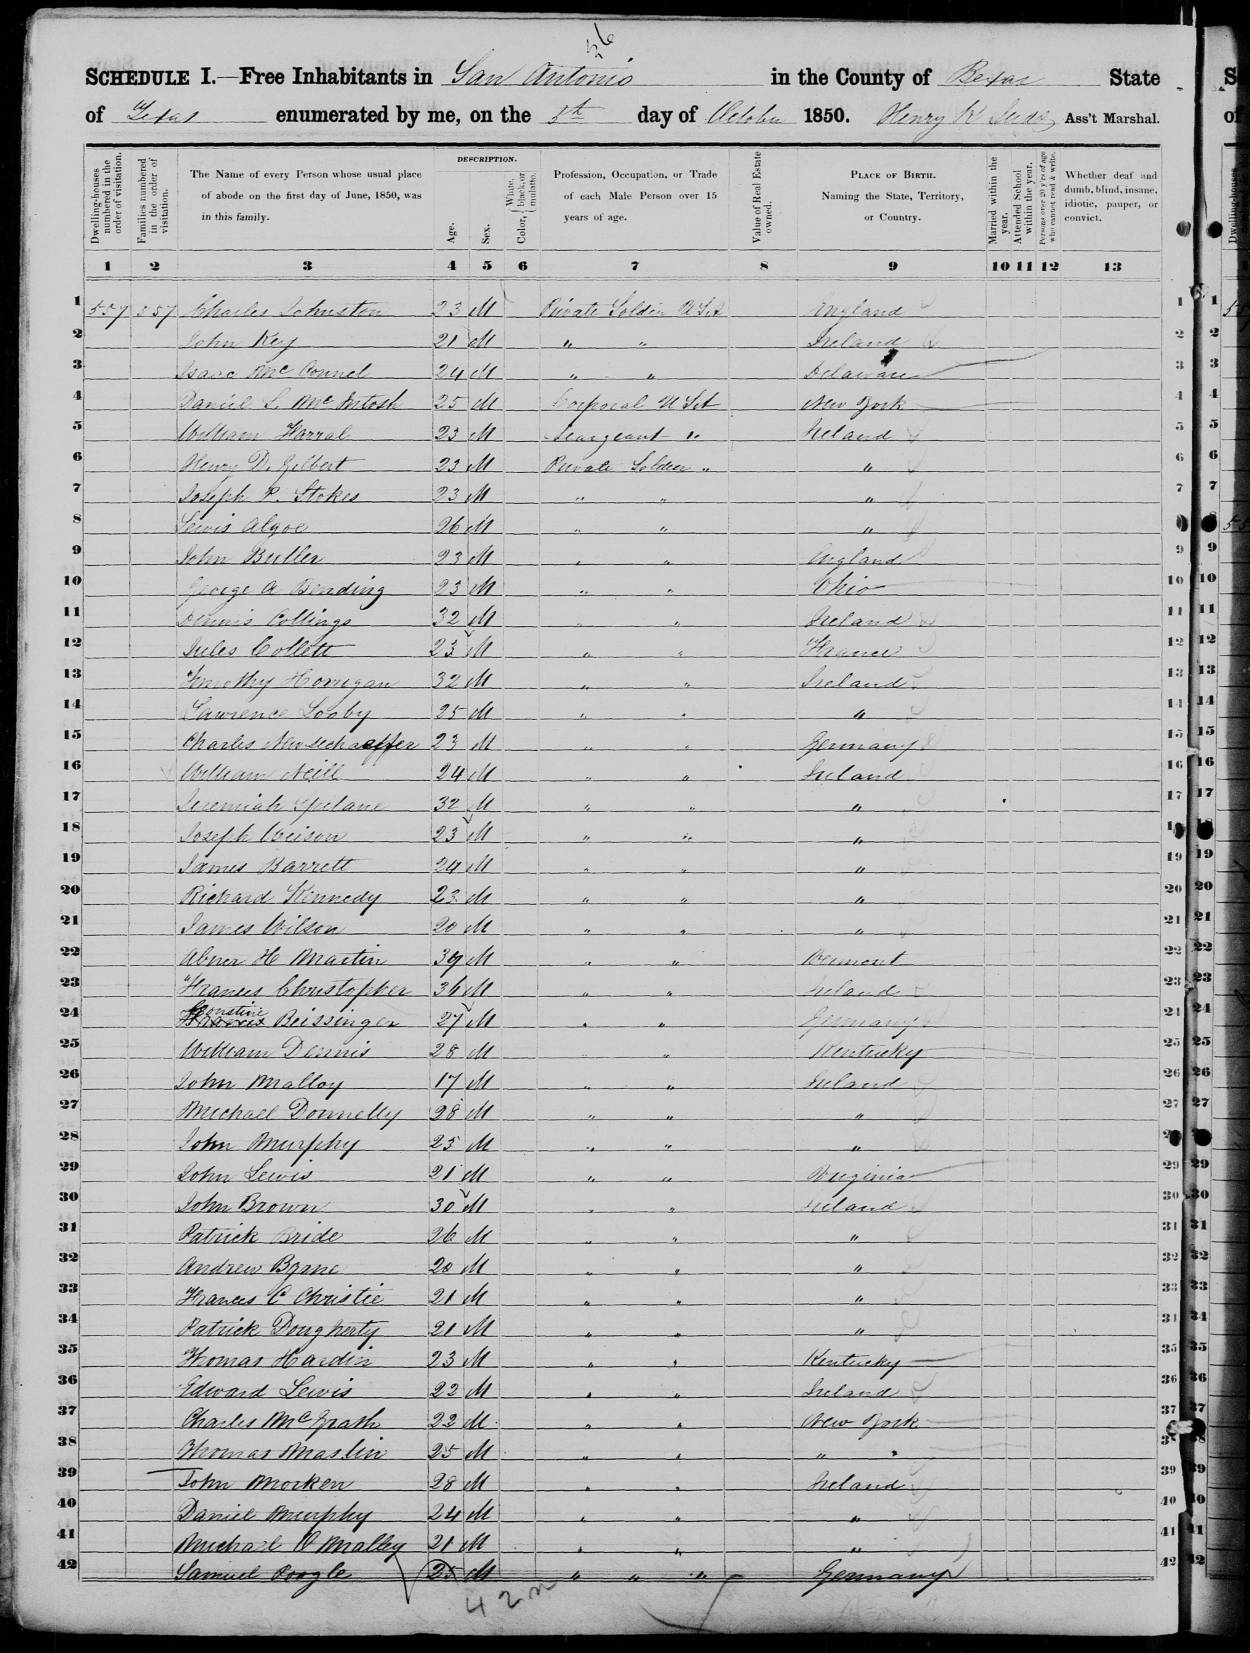 56
SCHEDULE I.—Free Inhabitants in San Antonio in the County of Bexar State
of Texas enumerated by me, on the 5th day of October 1850. Henry K Ass't Marshal.
Dwelling-houses numbered in the order of visitation.
Families numbered in the order of visitation.
The Name of every Person whose usual place of abode on the first day of June, 1850, was in this family.
DESCRIPTION.
Age.
Sex.
Color, { White, black, or mulatto.
Profession, Occupation, or Trade of each Male Person over 15 years of age.
Value of Real Estate owned.
PLACE OF BIRTH. Naming the State, Territory, or Country.
Married within the year.
Attended School within the year.
Persons over 20 y'rs of age who cannot read & write.
Whether deaf and dumb, blind, insane, idiotic, pauper, or convict.
1 2 3 4 5 6 7 8 9 10 11 12 13
1 557 557 Charles Johnston 23 M Private Soldier U S A England 1
2 John Key 21 M " " Ireland 2
3 Isaac McConnel 24 M " " Delaware 3
4 Daniel S. McIntosh 25 M Corporal U S A New York 4
5 William Harral 23 M Seargeant " Ireland 5
6 Henry D. Gilbert 23 M Private Soldier " " 6
7 Joseph P. Stokes 23 M " " " 7
8 Lewis Algoe 26 M " " " 8
9 John Butler 23 M " " England 9
10 George A Bending 23 M " " Ohio 10
11 Dennis Collings 32 M " " Ireland 11
12 Jules Collett 23 M " " France 12
13 Timothy Horrigan 32 M " " Ireland 13
14 Lawrence Looby 25 M " " " 14
15 Charles 23 M " " Germany 15
16 William Neill 24 M " " Ireland 16
17 Jeremiah 32 M " " " 17
18 Joseph Weison 23 M " " " 18
19 James Barrett 24 M " " " 19
20 Richard Kennedy 23 M " " " 20
21 James Wilson 20 M " " " 21
22 Abner H Martin 39 M " " Vermont 22
23 Frances Christopher 36 M " " Ireland 23
24 Beissinger 27 M " " Germany 24
25 William Dennis 28 M " " Kentucky 25
26 John Malloy 17 M " " Ireland 26
27 Michael Donnelly 28 M " " " 27
28 John Murphy 25 M " " " 28
29 John Lewis 21 M " " Virginia 29
30 John Brown 30 M " " Ireland 30
31 Patrick Bride 26 M " " " 31
32 Andrew Byrne 20 M " " " 32
33 Frances C Christie 21 M " " " 33
34 Patrick Dougherty 21 M " " " 34
35 Thomas Hardin 23 M " " Kentucky 35
36 Edward Lewis 22 M " " Ireland 36
37 Charles McGrath 22 M " " New York 37
38 Thomas Maslin 25 M " " " " 38
39 John Morken 28 M " " Ireland 39
40 Daniel Murphy 24 M " " " 40
41 Michael O Malley 21 M " " " 41
42 Samuel Poogle 25 M " " " Germany 42
42 m